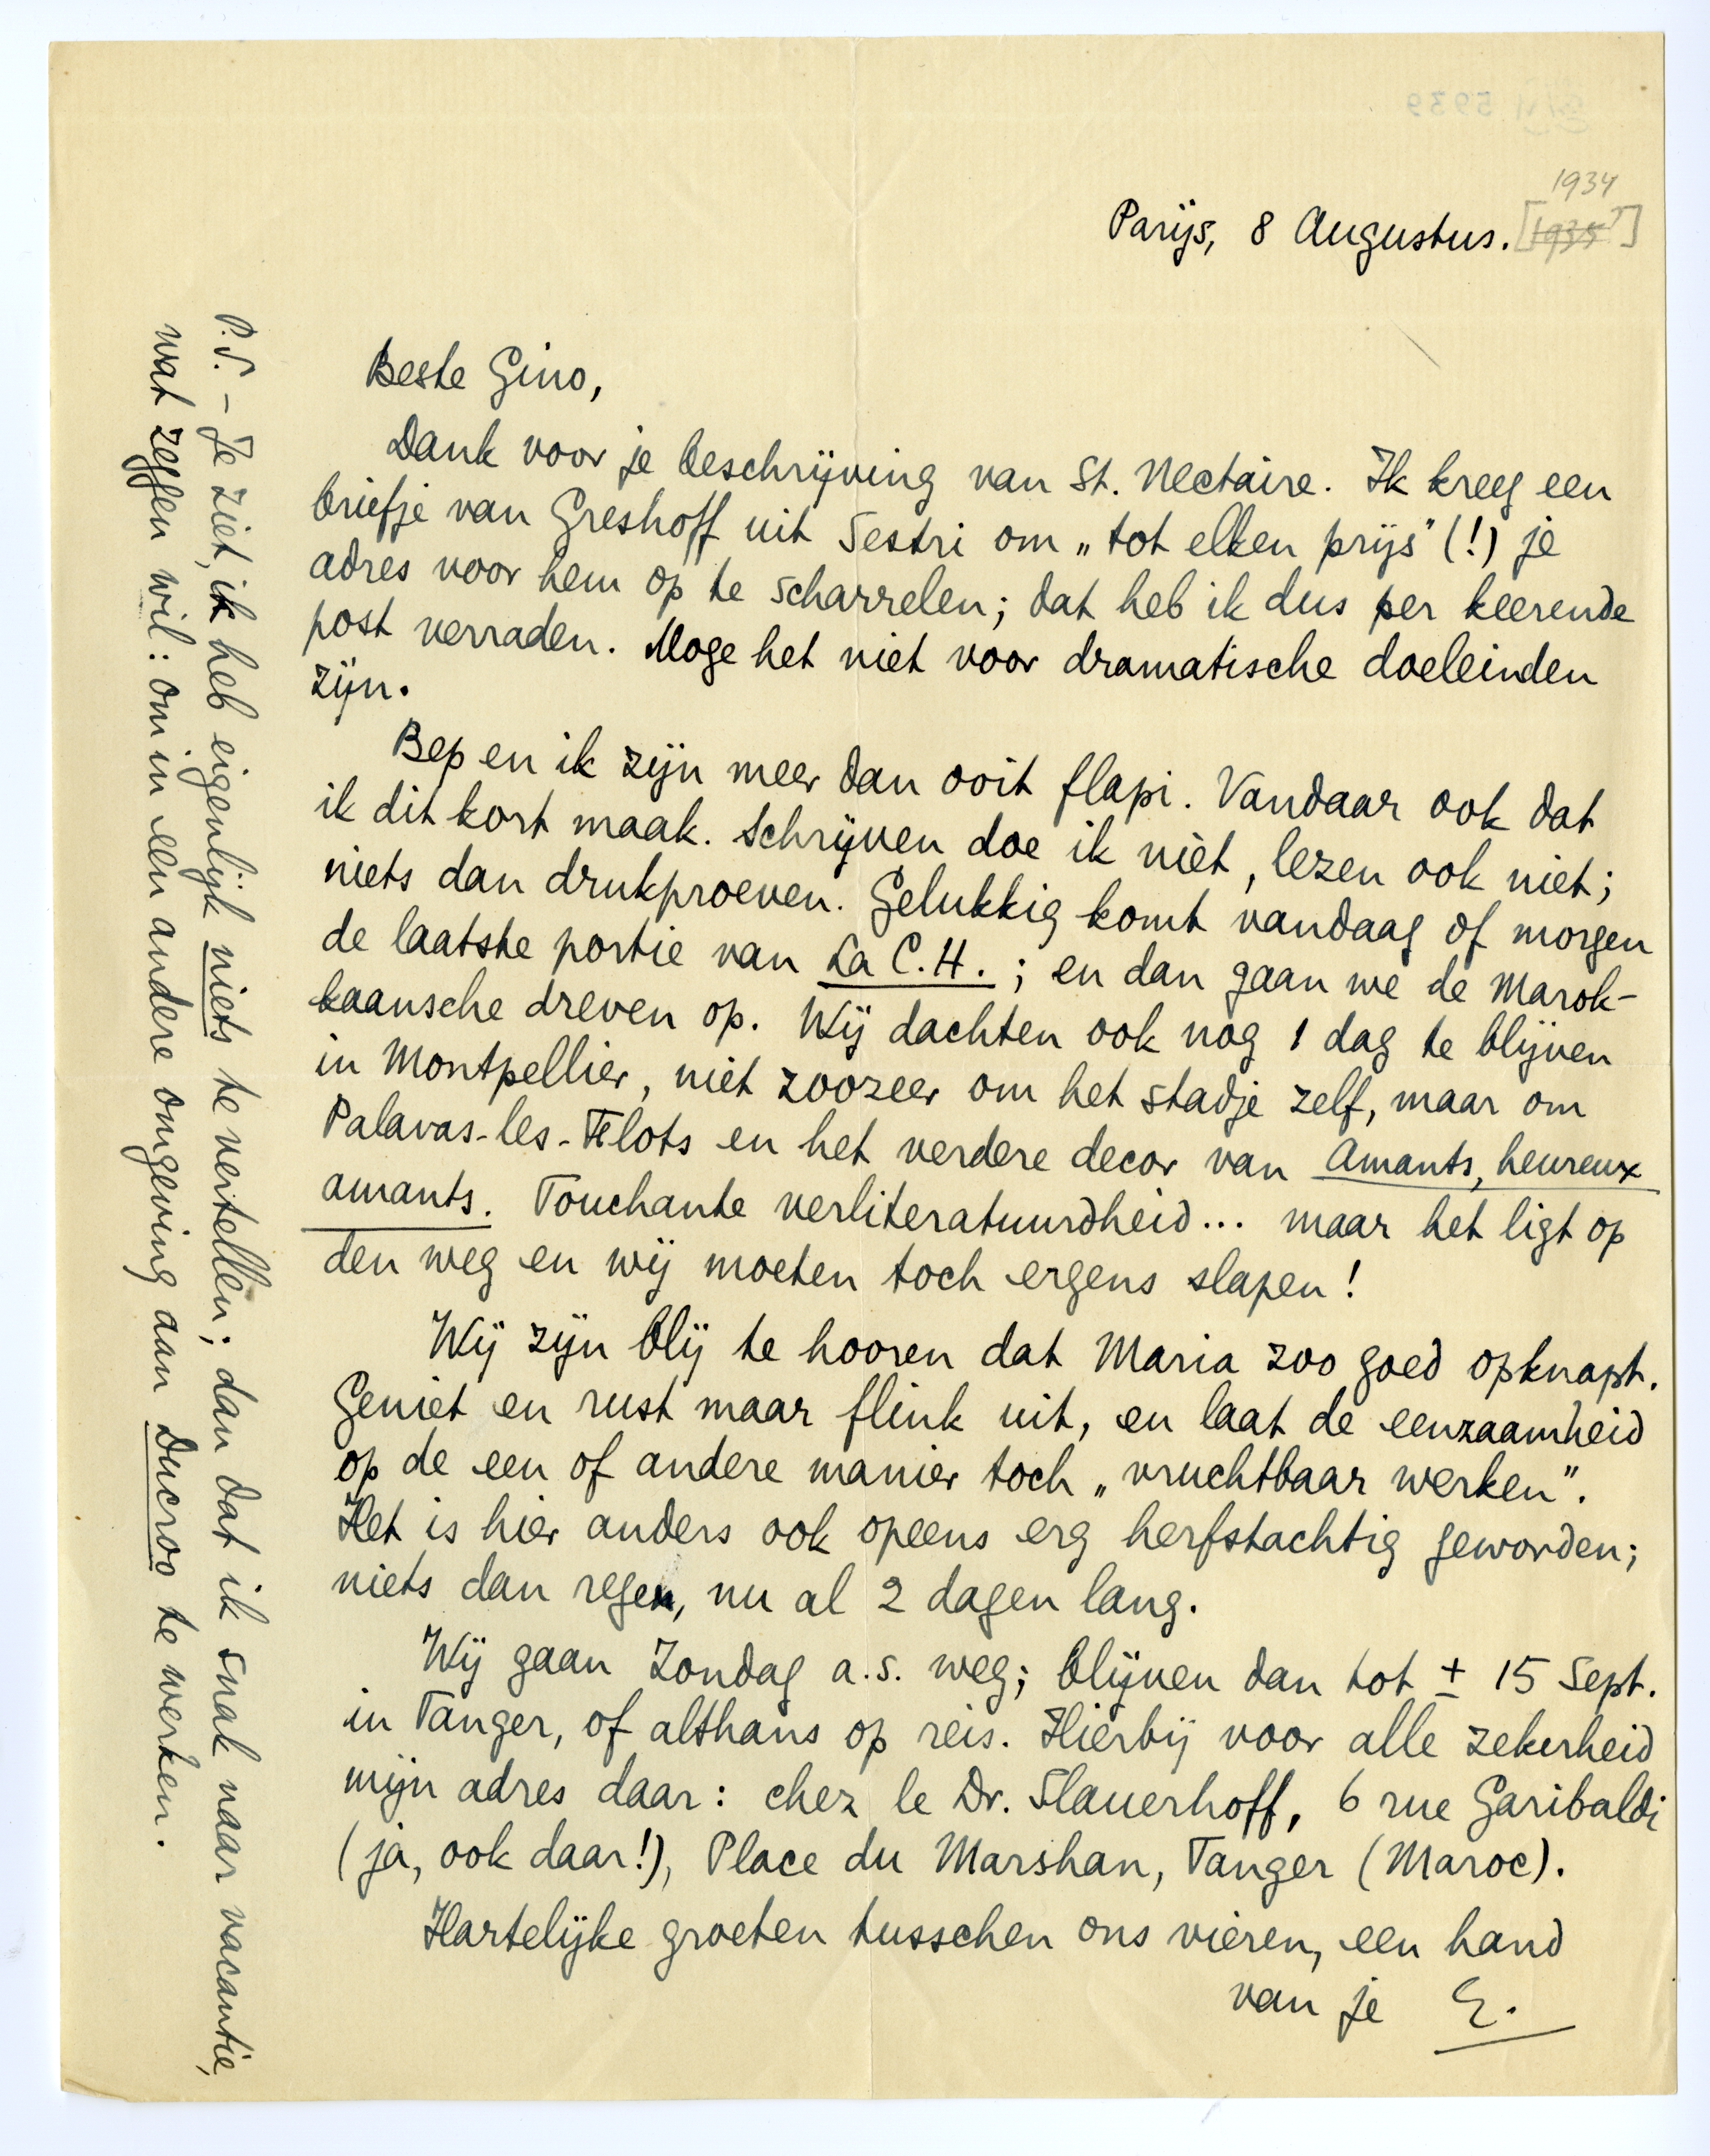 1934
Parijs, 8 Augustus. [1935]
Beste Gino,
Dank voor je beschrijving van St. Nectaire. Ik kreeg een
briefje van Greshoff uit Sestri om „tot elken prijs” (!) je
adres voor hem op te scharrelen; dat heb ik dus per keerende
post verraden. Moge het niet voor dramatische doeleinden
zijn.
Bep en ik zijn meer dan ooit flapi. Vandaar ook dat
ik dit kort maak. Schrijven doe ik niet, lezen ook niet;
niets dan drukproeven. Gelukkig komt vandaag of morgen
de laatste portie van La C.H.; en dan gaan we de Marok-
kaansche dreven op. Wij dachten ook nog 1 dag te blijven
in Montpellier, niet zoozeer om het stadje zelf, maar om
Palavas-les-Flots en het verdere decor van Amants, heureux
amants. Touchante verliteratuurdheid... maar het ligt op
den weg en wij moeten toch ergens slapen!
Wij zijn blij te hooren dat Maria zoo goed opknapt.
Geniet en rust maar flink uit, en laat de eenzaamheid
op de een of andere manier toch „vruchtbaar werken”.
Het is hier anders ook opeens erg herfstachtig geworden;
niets dan regen, nu al 2 dagen lang.
Wij gaan Zondag a.s. weg; blijven dan tot ± 15 Sept.
in Tanger, of althans op reis. Hierbij voor alle zekerheid
mijn adres daar: chez le Dr. Slauerhoff, 6 rue Garibaldi
(ja, ook daar!), Place du Marshan, Tanger (Maroc).
Hartelijke groeten tusschen ons vieren, een hand
van je E.
P.S. - Je ziet, ik heb eigenlijk niets te vertellen; dan dat ik snak naar vacantie,
wat zeggen wil: om in een andere omgeving aan Ducroo te werken.
5939